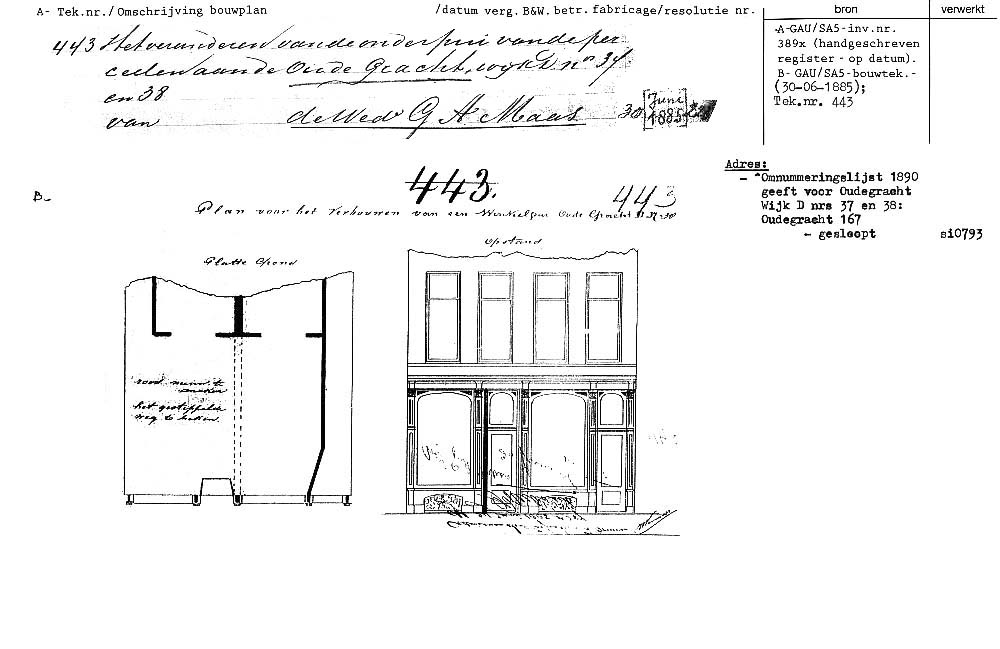 A- Tek.nr./ Omschrijving bouwplan /datum verg. B&W. betr. fabricage/resolutie nr. bron verwerkt
443 Het veranderen van de onderpui van de per
ceelen aan de Oude Gracht, wijk D nos 37
en 38
van de Wed G A Maas 30 [Juni 1885]
A-GAU/SA5-inv.nr.
389x (handgeschreven
register - op datum).
B- GAU/SA5-bouwtek.-
(30-06-1885);
Tek.nr. 443
Adres:
- *Omnummeringslijst 1890
geeft voor Oudegracht
Wijk D nrs 37 en 38:
Oudegracht 167
- gesloopt si0793
B-
443.
443
Plan voor het Verbouwen van een Winkelpui Oude Gracht D 37-38
Opstand
Platte Grond
rood nieuw te
maken
het gestippelde
weg te breken